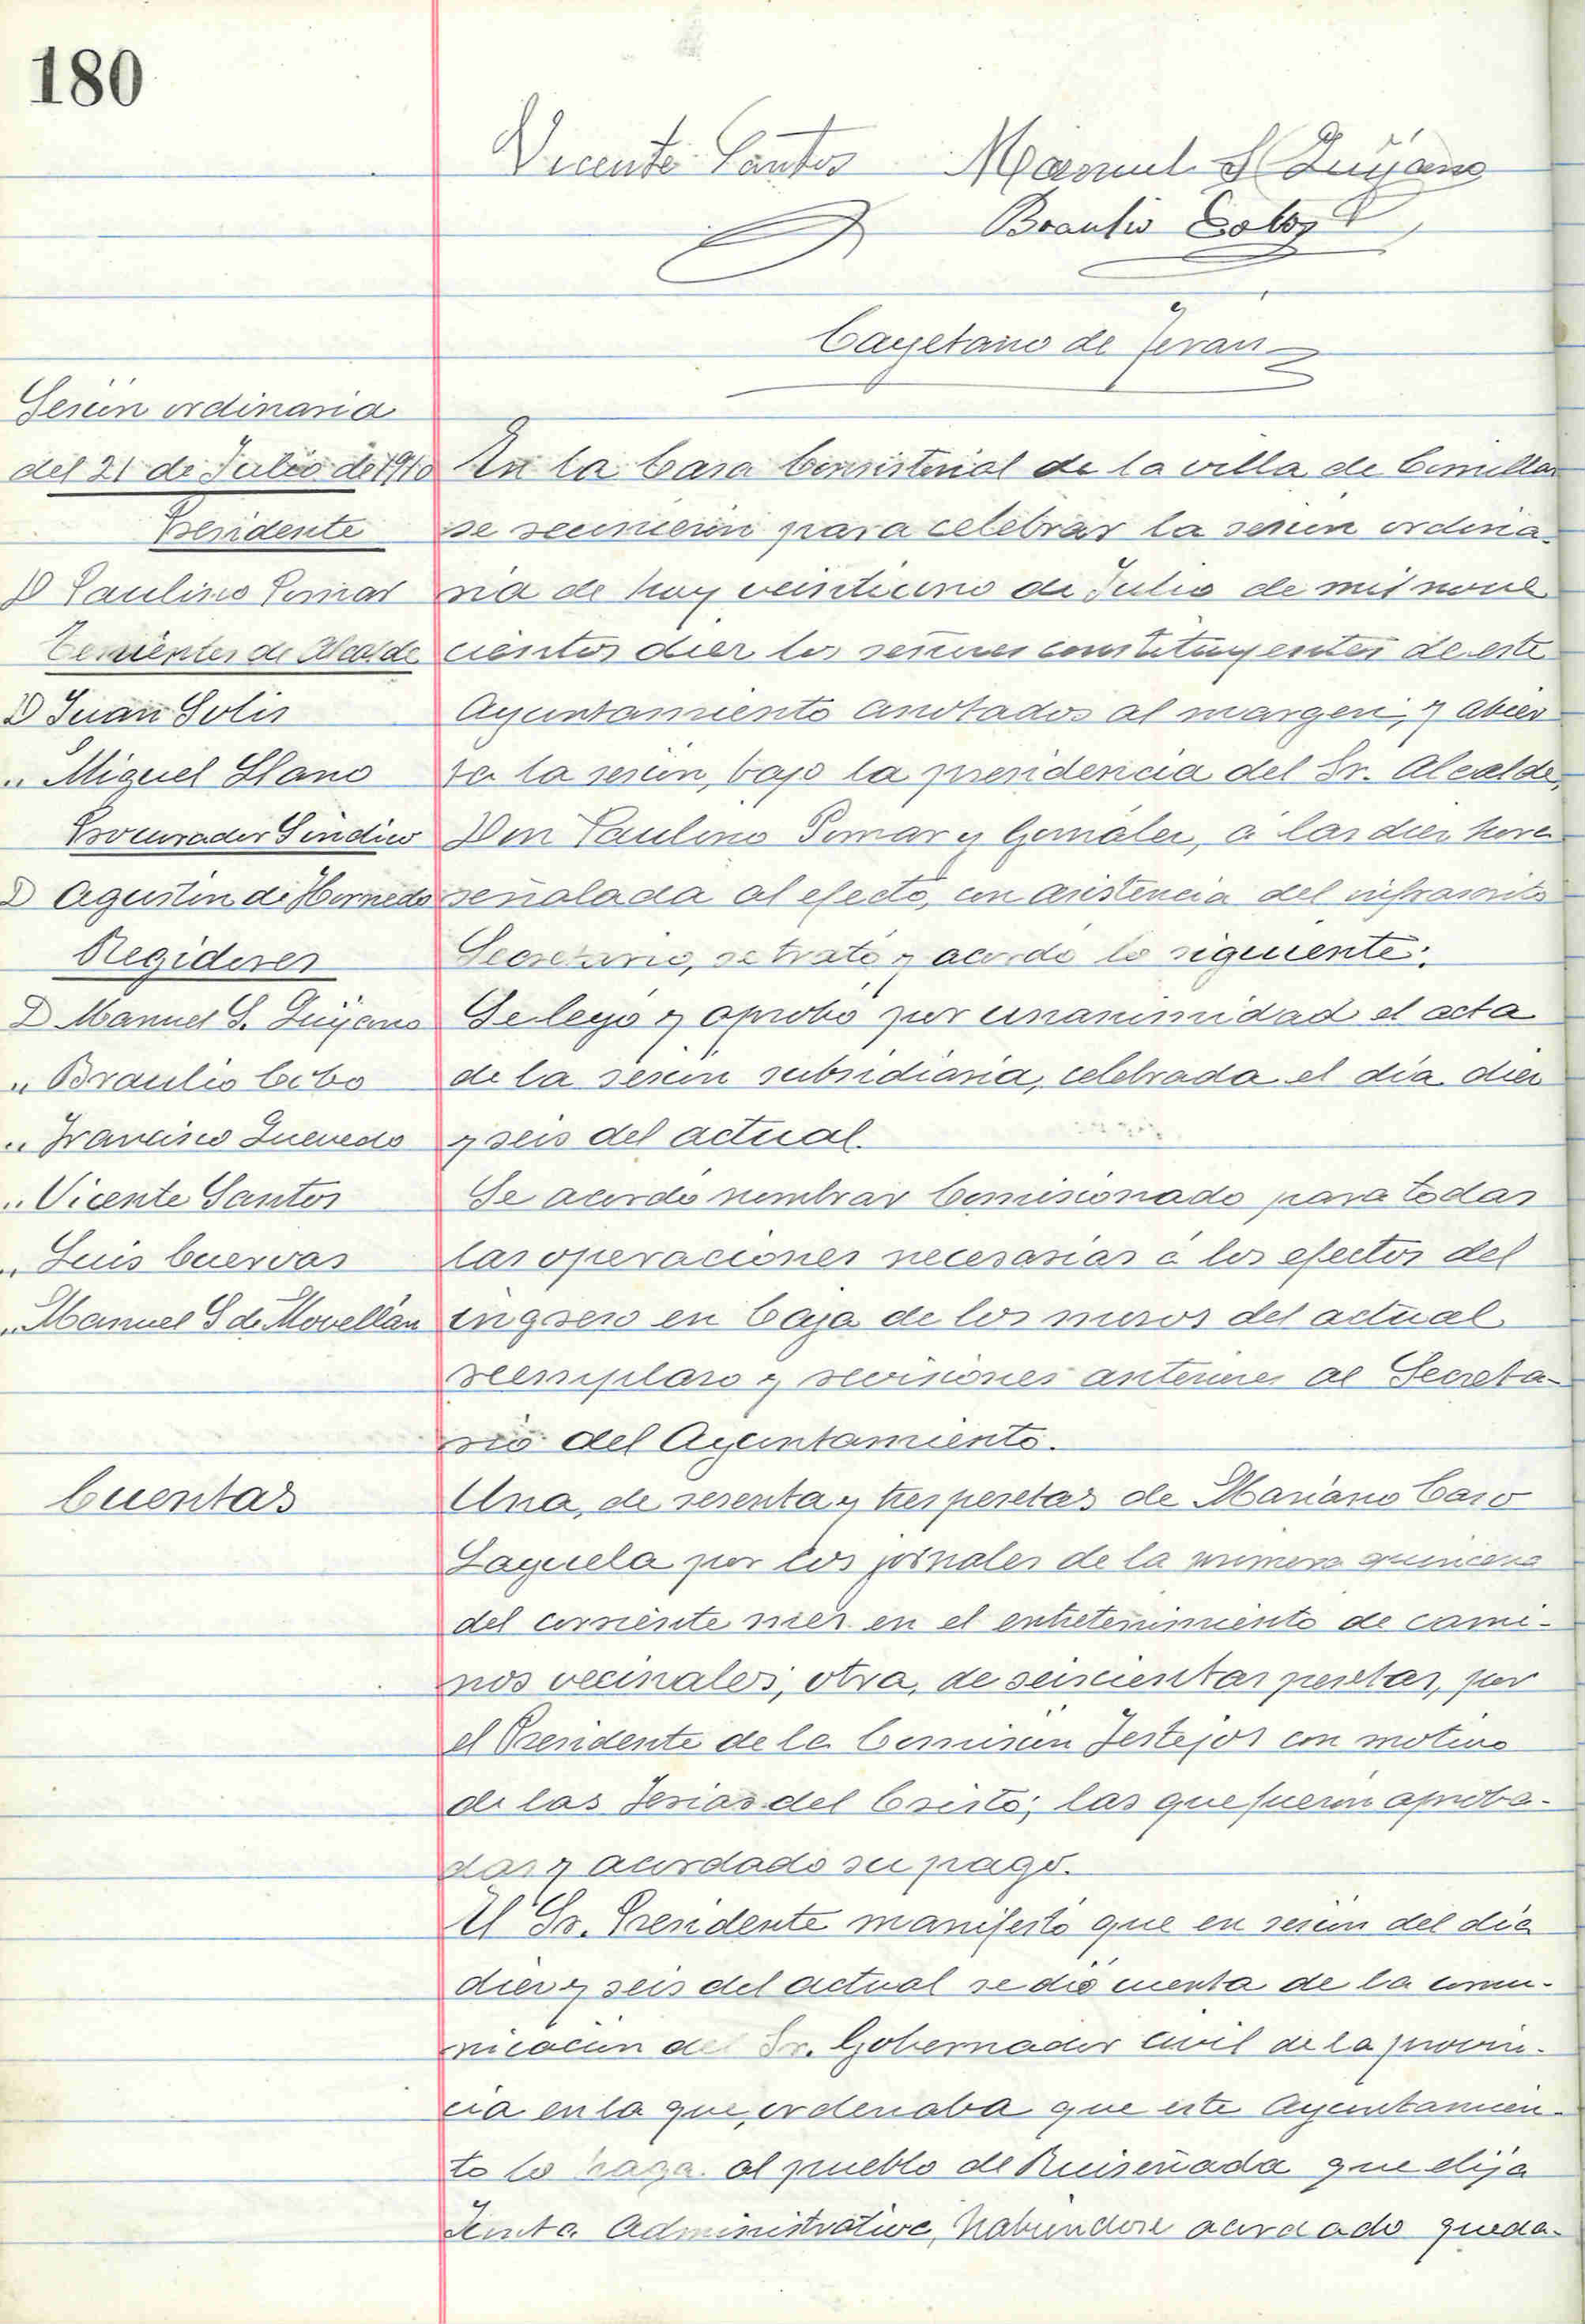 180
Vicente Santos Manuel S Quijano
Braulio Cobo
Cayetano de Terán
Sesión ordinaria
del 21 de Julio de 1910
Presidente
D Paulino Pomar
Tenientes de Alcalde
D Juan Solis
" Miguel Llano
Procurador Sindico
D Agustin de Hornedo
Regidores
D Manuel S. Quijano
" Braulio Cobo
" Francisco Quevedo
" Vicente Santos
" Luis Cuervas
" Manuel S de Movellán
En la Casa Consistorial de la villa de Comillas
se reunieron para celebrar la sesión ordina-
ria de hoy veintiuno de Julio de mil nove
cientos diez los señores constituyentes de este
Ayuntamiento anotados al margen, y abier
ta la sesión, bajo la presidencia del Sr. Alcalde,
Don Paulino Pomar y González, á las diez hora
señalada al efecto, con asistencia del infrascrito
Secretario, se trató y acordó lo siguiente:
Se leyó y aprobó por unanimidad el acta
de la sesión subsidiaria, celebrada el día diez
y seis del actual.
Se acordó nombrar Comisionado para todas
las operaciones necesarias á los efectos del
ingreso en Caja de los mozos del actual
reemplazo y revisiones anteriores al Secreta-
rio del Ayuntamiento.
Cuentas
Una, de sesenta y tres pesetas de Mariano Caso
Laguela por los jornales de la primera quincena
del corriente mes en el entretenimiento de cami-
nos vecinales; otra, de seiscientas pesetas, por
el Presidente de la Comisión Festejos con motivo
de las Ferias del Cristo; las que fueron aproba-
das y acordado su pago.
El Sr. Presidente manifestó que en sesión del día
diez y seis del actual se dió cuenta de la comu-
nicación del Sr. Gobernador civil de la provin-
cia en la que, ordenaba que este Ayuntamien-
to lo haga al pueblo de Ruiseñada que elija
Junta Administrativa, habiendose acordado queda-